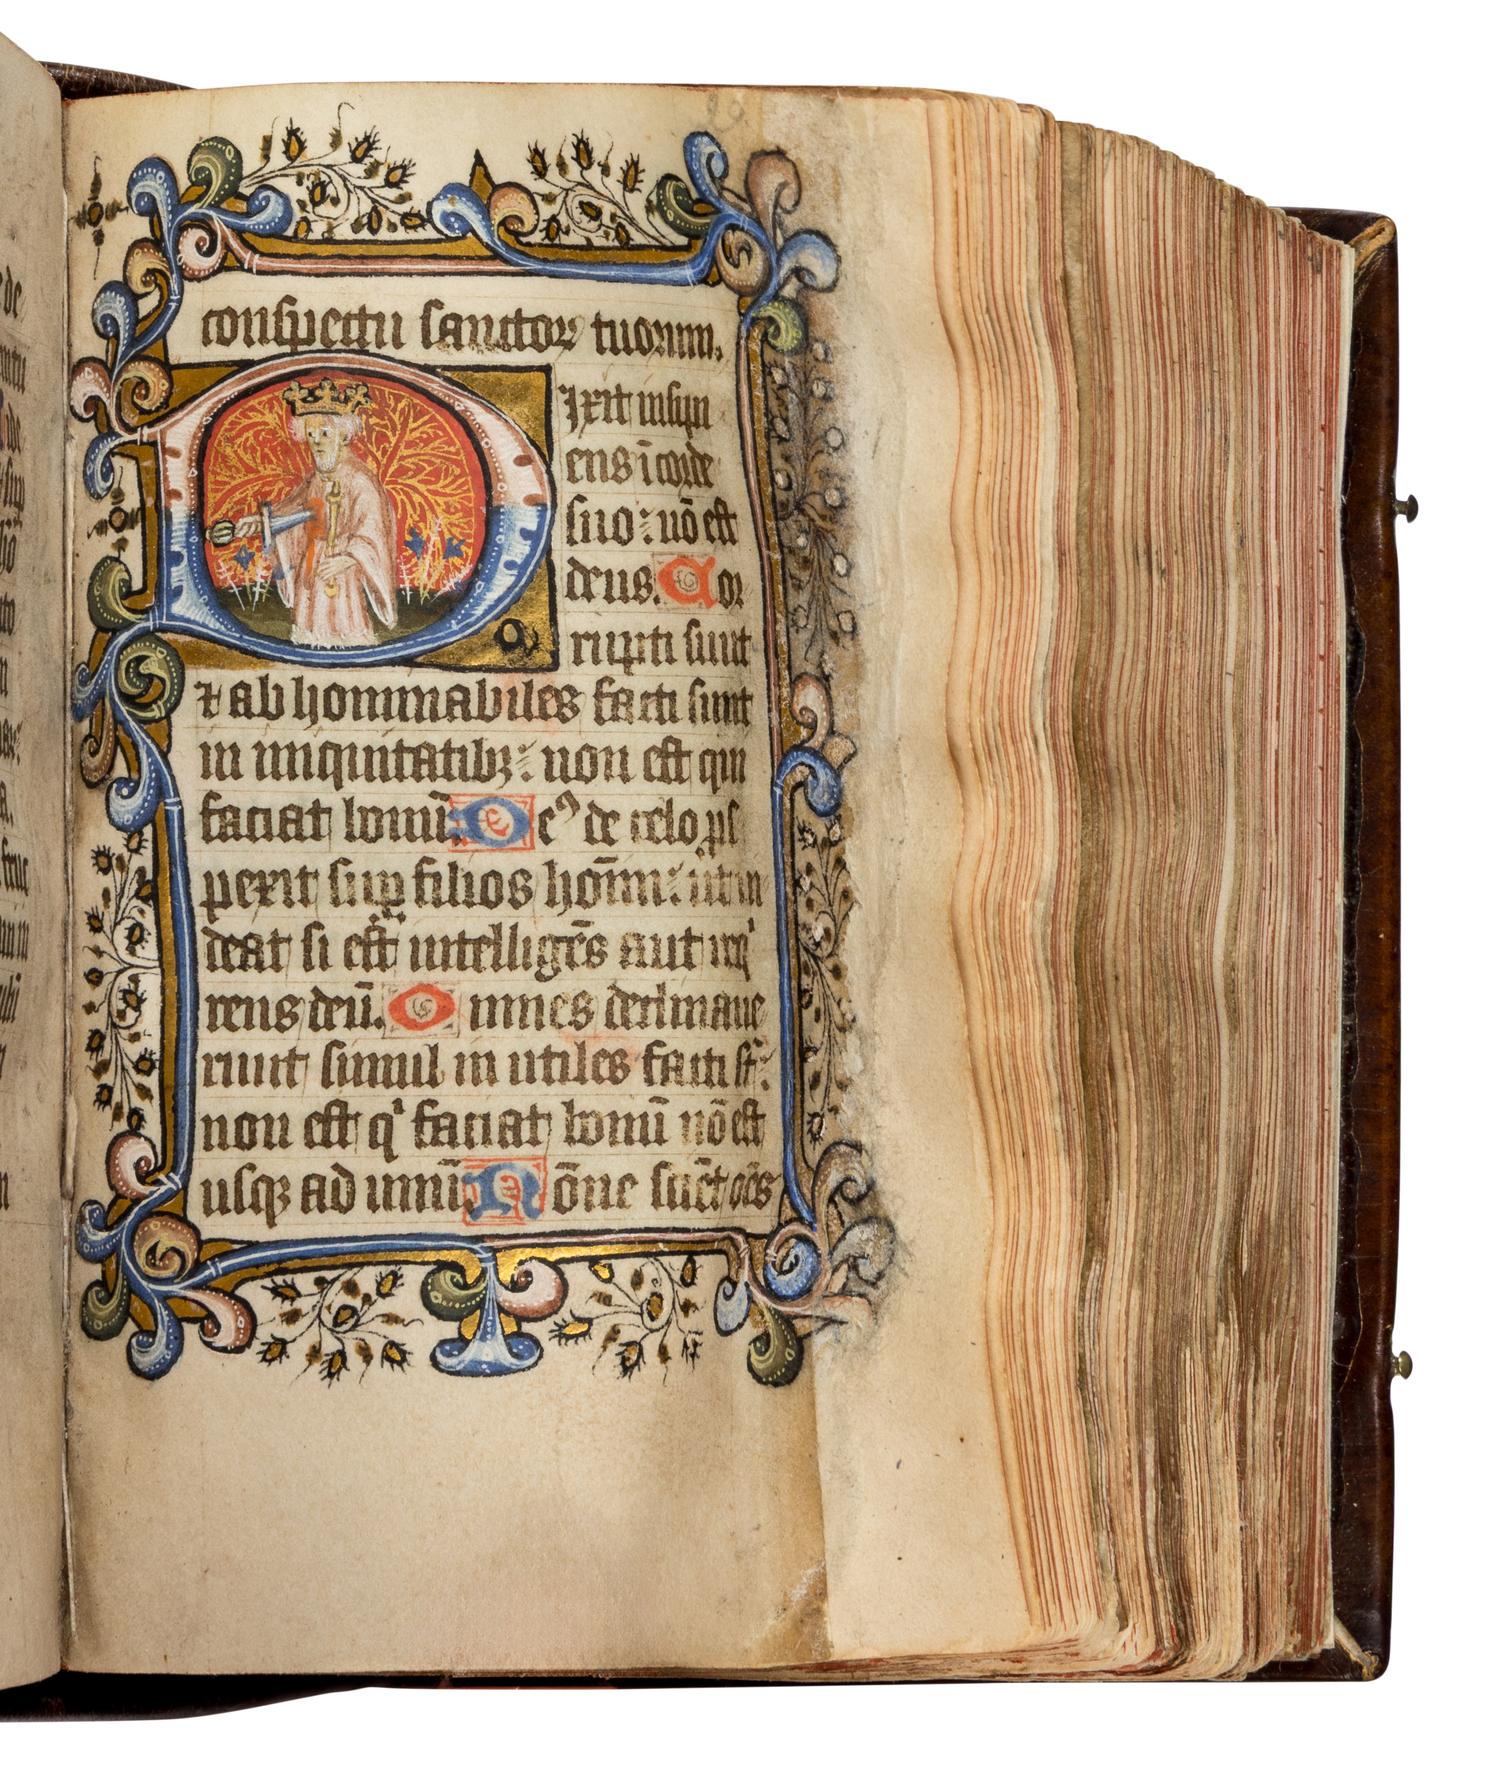 conspectu sanctoꝝ tuorum.
Dixit insipi
ens ī corde
suo: nō est
deus. Cor
rupti sunt
⁊ ab hominabiles facti sunt
in iniquitatibꝫ: non est qui
faciat bonū. Deꝰ de celo ꝓs
pexit suꝑ filios hōim: ut vi
deat si est intelligēs aut req͛
rens deū. Omnes declinaue
runt simul in utiles facti st̄:
non est qͥ faciat bonū nō est
usqꝫ ad unū. Nōne sciēt oēs